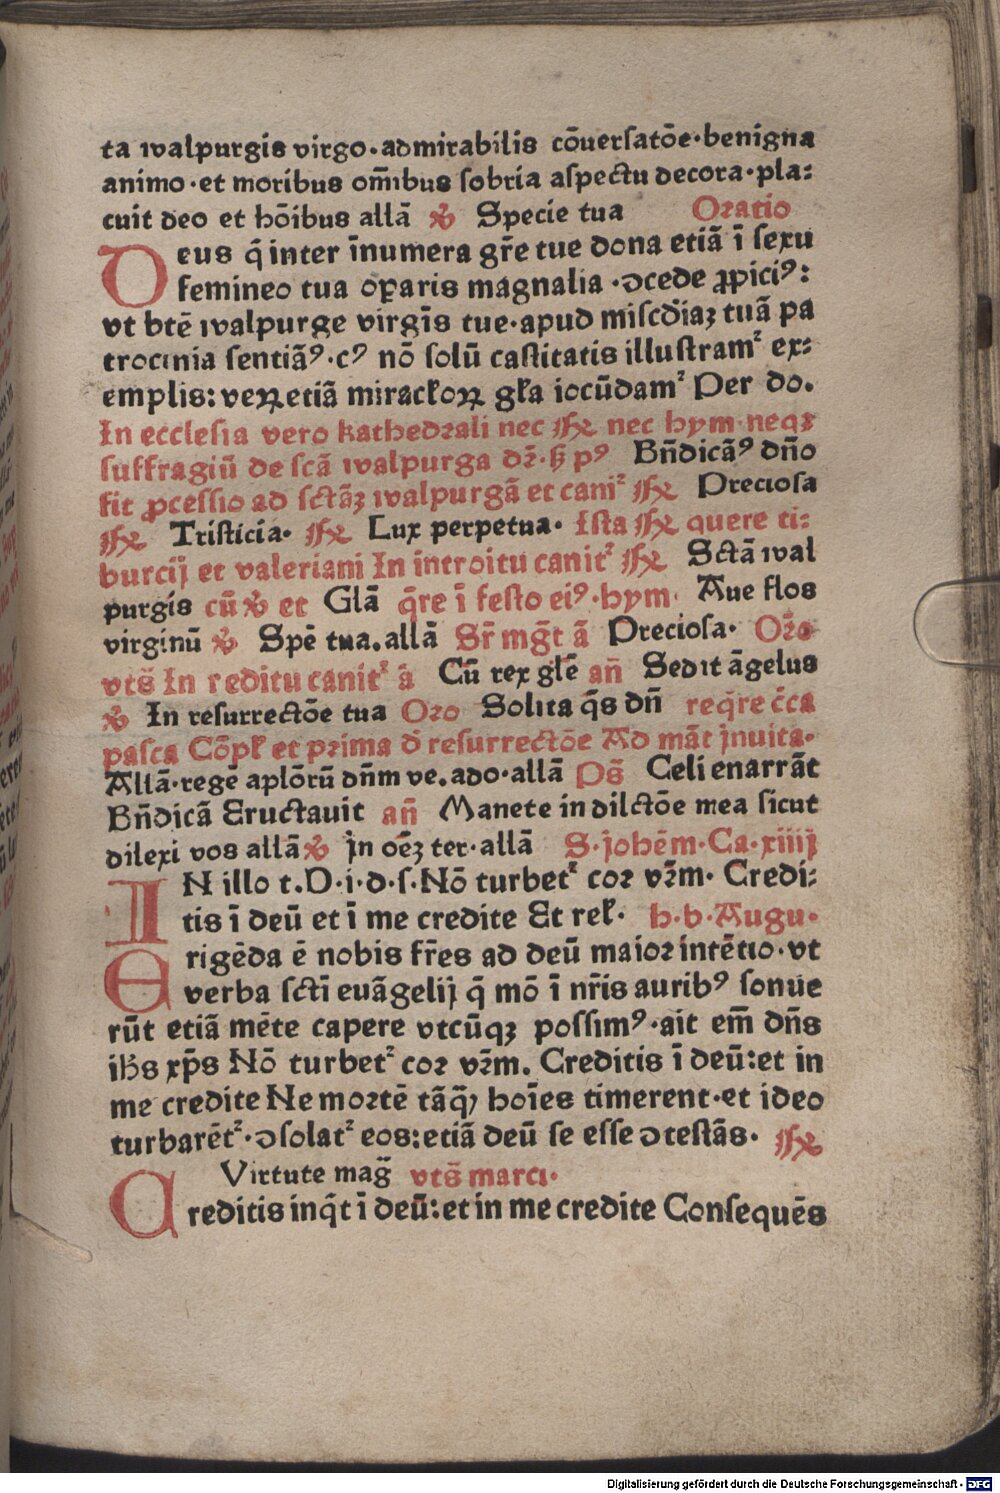 ta walpurgis virgo·admirabilis cōuerſatōe·benigna
animo·et moribus om̄ibus ſobria aſpectu decora·pla:
cuit deo et hōibus allā ℣ Specie tua Oratio
Deus q̄ inter īnumera gr̄e tue dona etiā ī ſexu
femineo tua oꝑaris magnalia·ↄcede ꝓpiciꝰ:
vt btē walpurge virgīs tue·apud miſcd̄iaꝫ tuā pa
trocinia ſentiāꝰ·cꝰ nō ſolū caſtitatis illuſtramᷣ ex:
emplis: veꝝ etiā mirackoꝝ gl̄a iocūdamᷣ Per do.
In eccleſia vero kathedrali nec ℟ nec hym neqꝫ
ſuffragiū de ſcā walpurga dꝛ̄·ſꝫ pꝰ Bn̄dicāꝰ dn̄o
fit ꝓceſſio ad ſctāꝫ walpurgā et caniᷣ ℟ Precioſa
℟ Triſticia· ℟ Lux perpetua· Iſta ℟ quere ti:
burcij et valeriani In introitu canitᷣ ℟ Sctā wal
purgis cū ℣ et Glā q̄re ī feſto eiꝰ·hym· Aue flos
virginū ℣ Spē tua.allā Sr̄ mḡt ā Precioſa· Oꝛ̄o
vts̄ In reditu canitᷣ ā Cū rex glē an̄ Sedit āgelus
℣ In reſurrectōe tua Oꝛo Solita q̄s dn̄ req̄re c̄ca
paſca Cōpl̄ et pꝛima d̄ reſurrectōe Ad māt jnuita·
Allā·regē aplōrū dn̄m ve.ado·allā Ps̄ Celi enarrāt
Bn̄dicā Eructauit an̄ Manete in dilctōe mea ſicut
dilexi vos allā ℣ jn oēꝫ ter·allā S·johēm·Ca·xiiij
IN illo t.D·i·d·ſ·Nō turbetᷣ coꝛ vꝛ̄m· Credi:
tis ī deū et ī me credite Et rel̄· h·b·Auguſ·
Erigēda ē nobis fr̄es ad deū maioꝛ intētio·vt
verba ſctī euāgelij q̄ mō ī nr̄is auribꝰ ſonue
rūt etiā mēte capere vtcūqꝫ poſſimꝰ·ait em̄ dn̄s
ih̄s xp̄s Nō turbetᷣ coꝛ vꝛ̄m. Creditis ī deū:et in
me credite Ne moꝛtē tāq̄ȝ hoīes timerent·et ideo
turbarētᷣ·ↄſolatᷣ eos:etiā deū ſe eſſe ↄteſtās· ℟
Virtute mag̃ vts̄ marci·
Creditis inq̄t ī deū:et in me credite Conſequēs
Digitalisierung gefördert durch die Deutsche Forschungsgemeinschaft - DFG